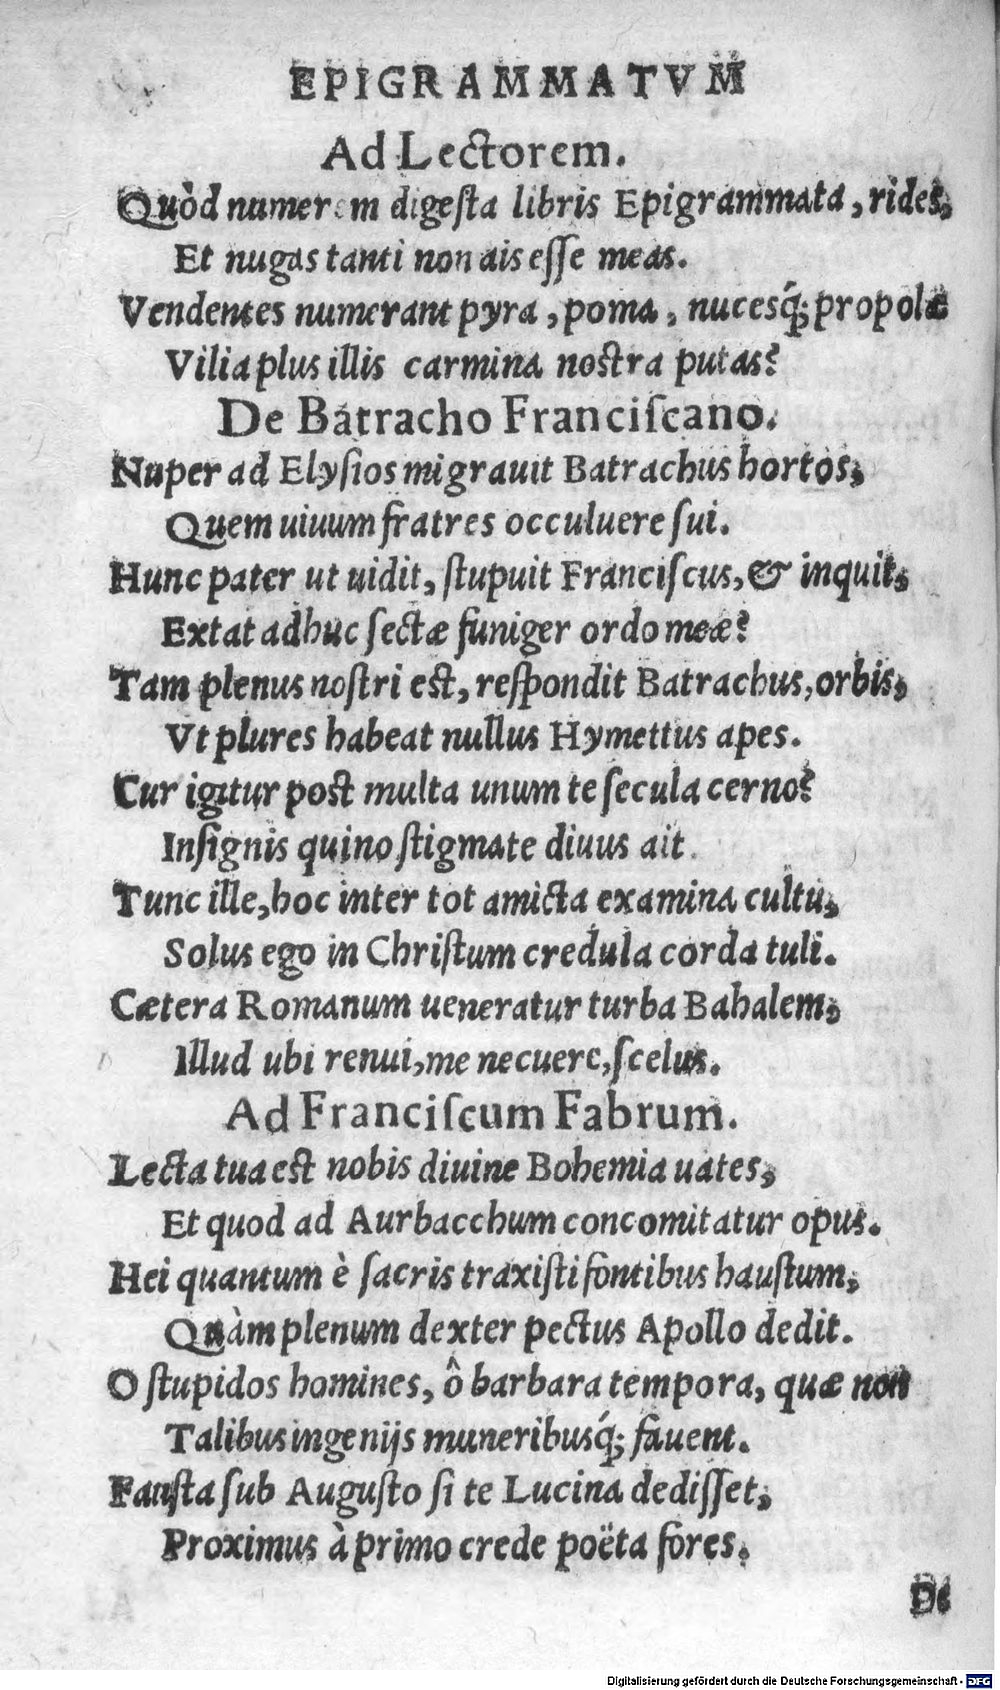 EPIGRAMMATVM
Ad Lectorem.
Quòd numerum digeſta libris Epigrammata, rides,
Et nugas tanti non ais eſſe meas.
Vendentes numerant pyra, poma, nucesq́; propolæ
Vilia plus illis carmina noſtra putas?
De Batracho Franciſcano.
Nuper ad Elyſios migrauit Batrachus hortos,
Quem uiuum fratres occuluere ſui.
Hunc pater ut uidit, ſtupuit Franciſcus, & inquit,
Extat adhuc ſectæ funiger ordo meæ?
Tam plenus noſtri eſt, reſpondit Batrachus, orbis,
Vt plures habeat nullus Hymettus apes.
Cur igitur poſt multa unum te ſecula cerno?
Inſignis quino ſtigmate diuus ait.
Tunc ille, hoc inter tot amicta examina cultu,
Solus ego in Chriſtum credula corda tuli.
Cætera Romanum ueneratur turba Bahalem,
Illud ubi renui, me necuere, ſcelus.
Ad Franciſcum Fabrum.
Lecta tua eſt nobis diuine Bohemia uates,
Et quod ad Aurbacchum concomitatur opus.
Hei quantum è ſacris traxiſti fontibus hauſtum,
Quàm plenum dexter pectus Apollo dedit.
O ſtupidos homines, ô barbara tempora, quæ non
Talibus ingenijs muneribusq́; fauent.
Fauſta ſub Auguſto ſi te Lucina dediſſet,
Proximus à primo crede poëta fores.
De
Digitalisierung gefördert durch die Deutsche Forschungsgemeinschaft - DFG